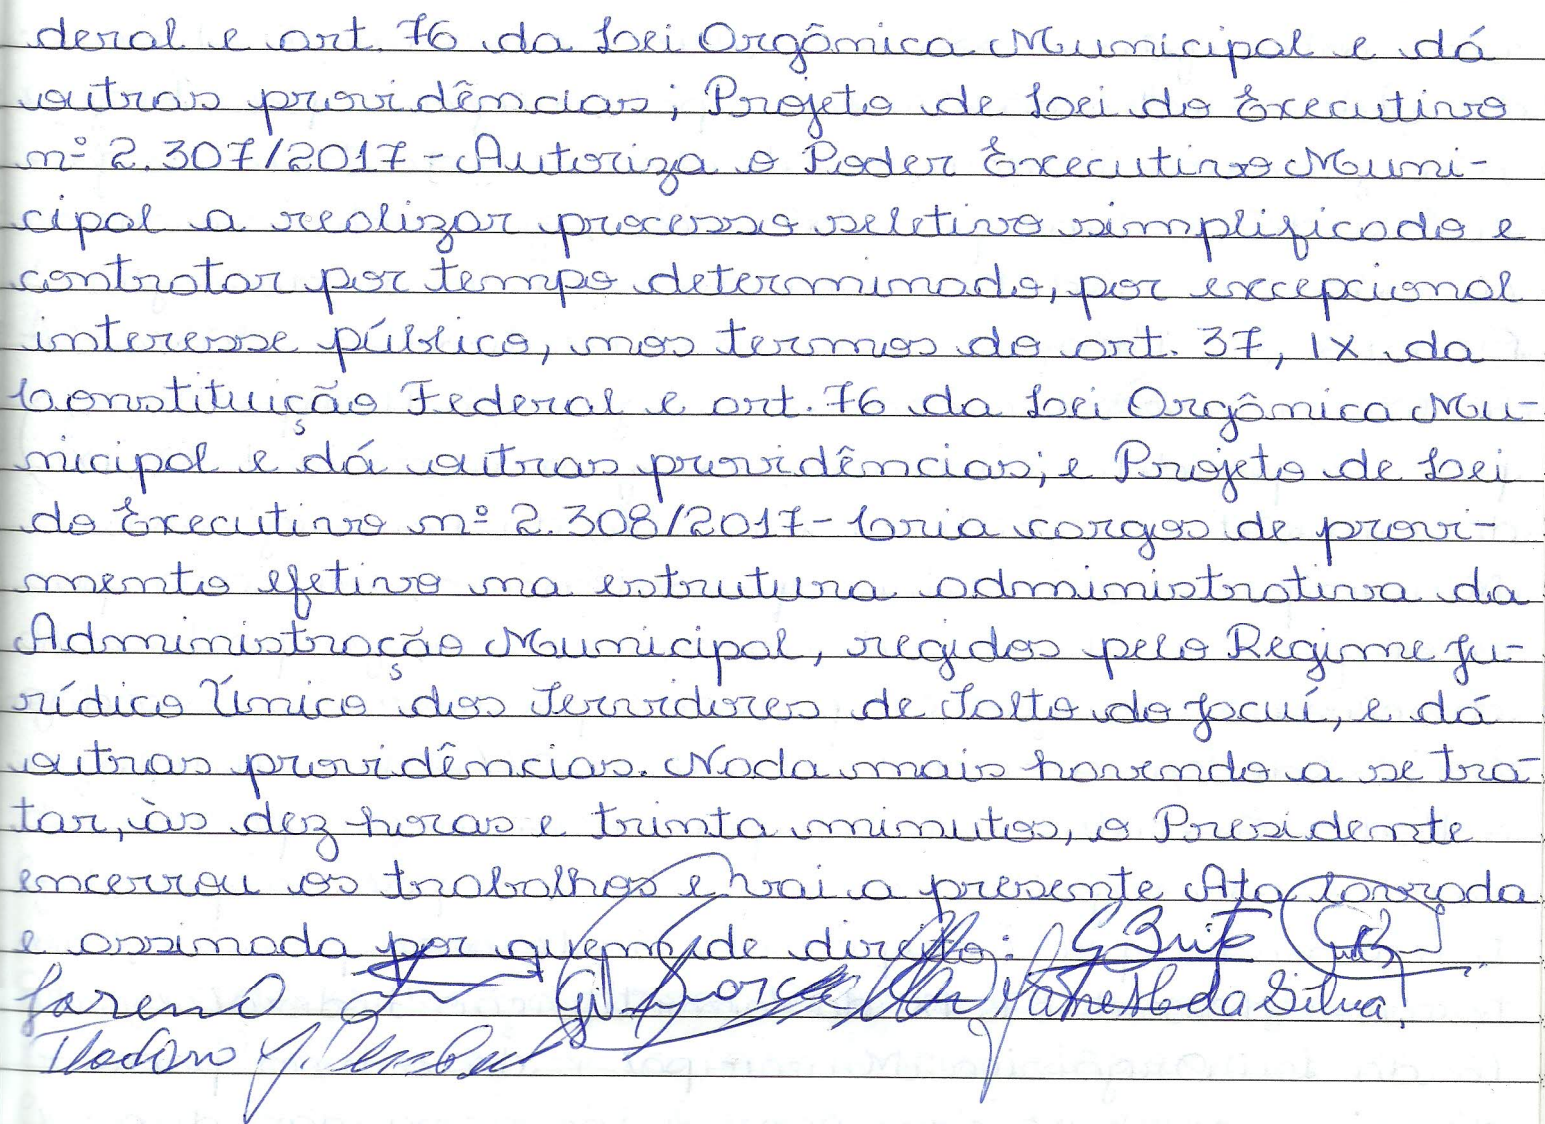 deral e art. 76 da Lei Orgânica Municipal e dá
outras providências; Projeto de Lei do Executivo
nº 2.307/2017 - Autoriza o Poder Executivo Muni-
cipal a realizar processo seletivo simplificado e
contratar por tempo determinado, por excepcional
interesse público, nos termos do art. 37, IX da
Constituição Federal e art. 76 da Lei Orgânica Mu-
nicipal e dá outras providências; e Projeto de Lei
do Executivo nº 2.308/2017 - Cria cargos de provi-
mento efetivo na estrutura administrativa da
Administração Municipal, regidos pelo Regime Ju-
rídico Único dos Servidores de Salto do Jacuí, e dá
outras providências. Nada mais havendo a se tra-
tar, às dez horas e trinta minutos, o Presidente
encerrou os trabalhos e vai a presente Ata lavrada
e assinada por quem de direito: G Brito
da Silva